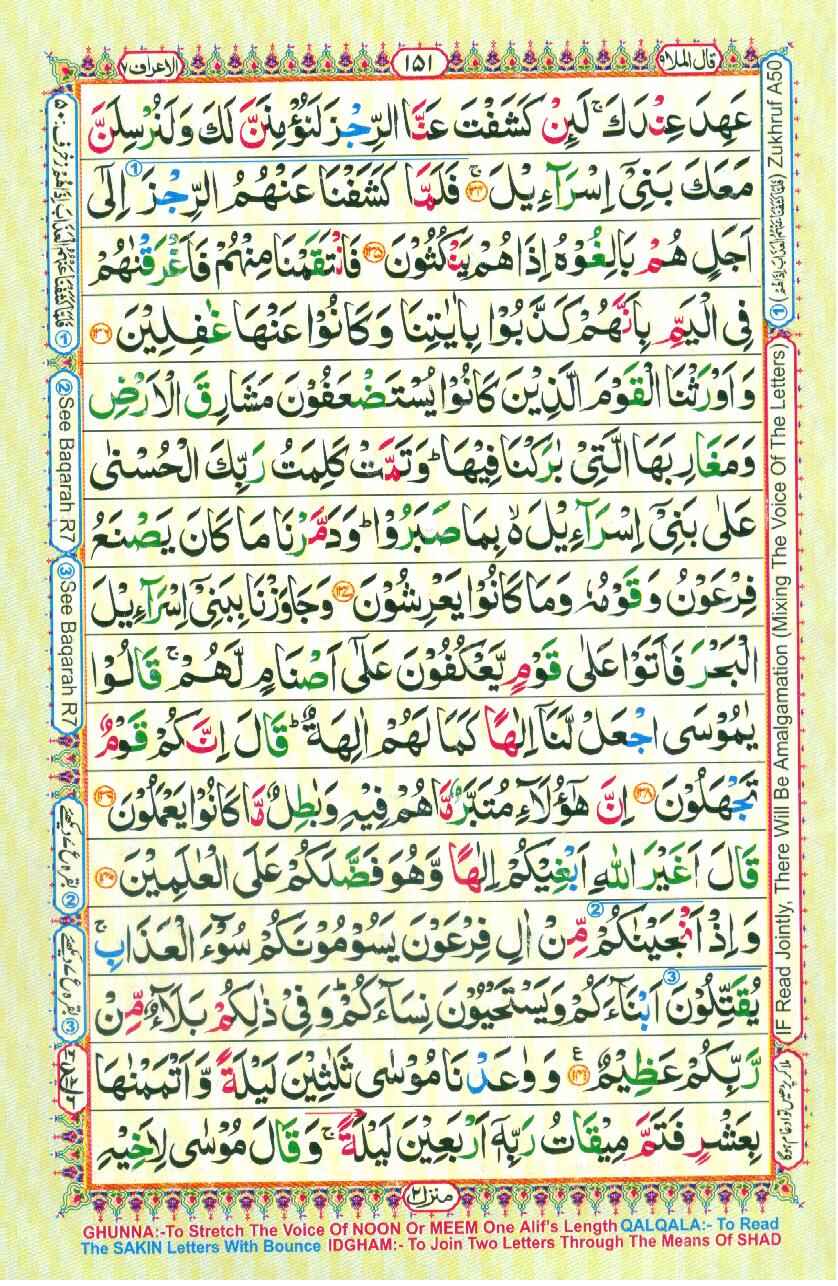 قال الملا ٩
١٥١
الاعراف ٧
عَهِدَ عِنْدَكَ ۚ لَئِنْ كَشَفْتَ عَنَّا الرِّجْزَ لَنُؤْمِنَنَّ لَكَ وَلَنُرْسِلَنَّ
مَعَكَ بَنِيْٓ اِسْرَآءِيْلَ ۚ‏﴿۱۳۴﴾ فَلَمَّا كَشَفْنَا عَنْهُمُ الرِّجْزَ اِلٰٓى
اَجَلٍ هُمْ بَالِغُوْهُ اِذَا هُمْ يَنْكُثُوْنَ ﴿۱۳۵﴾ فَانْتَقَمْنَا مِنْهُمْ فَاَغْرَقْنٰهُمْ
فِى الْيَمِّ بِاَنَّهُمْ كَذَّبُوْا بِاٰيٰتِنَا وَكَانُوْا عَنْهَا غٰفِلِيْنَ ﴿۱۳۶﴾
وَاَوْرَثْنَا الْقَوْمَ الَّذِيْنَ كَانُوْا يُسْتَضْعَفُوْنَ مَشَارِقَ الْاَرْضِ
وَمَغَارِبَهَا الَّتِيْ بٰرَكْنَا فِيْهَا ؕ وَتَمَّتْ كَلِمَتُ رَبِّكَ الْحُسْنٰى
عَلٰى بَنِيْٓ اِسْرَآءِيْلَ ۙ بِمَا صَبَرُوْا ؕ وَدَمَّرْنَا مَا كَانَ يَصْنَعُ
فِرْعَوْنُ وَقَوْمُهٗ وَمَا كَانُوْا يَعْرِشُوْنَ ﴿۱۳۷﴾ وَجَاوَزْنَا بِبَنِيْٓ اِسْرَآءِيْلَ
الْبَحْرَ فَاَتَوْا عَلٰى قَوْمٍ يَّعْكُفُوْنَ عَلٰٓى اَصْنَامٍ لَّهُمْ ۚ قَالُوْا
يٰمُوْسَى اجْعَلْ لَّنَآ اِلٰهًا كَمَا لَهُمْ اٰلِهَةٌ ؕ قَالَ اِنَّكُمْ قَوْمٌ
تَجْهَلُوْنَ ﴿۱۳۸﴾ اِنَّ هٰٓؤُلَآءِ مُتَبَّرٌ مَّا هُمْ فِيْهِ وَبٰطِلٌ مَّا كَانُوْا يَعْمَلُوْنَ ﴿۱۳۹﴾
قَالَ اَغَيْرَ اللّٰهِ اَبْغِيْكُمْ اِلٰهًا وَّهُوَ فَضَّلَكُمْ عَلَى الْعٰلَمِيْنَ ﴿۱۴۰﴾
وَاِذْ اَنْجَيْنٰكُمْ مِّنْ اٰلِ فِرْعَوْنَ يَسُوْمُوْنَكُمْ سُوْٓءَ الْعَذَابِ ۚ
يُقَتِّلُوْنَ اَبْنَآءَكُمْ وَيَسْتَحْيُوْنَ نِسَآءَكُمْ ؕ وَفِيْ ذٰلِكُمْ بَلَآءٌ مِّنْ
رَّبِّكُمْ عَظِيْمٌ ﴿۱۴۱﴾ وَوٰعَدْنَا مُوْسٰى ثَلٰثِيْنَ لَيْلَةً وَّاَتْمَمْنٰهَا
بِعَشْرٍ فَتَمَّ مِيْقَاتُ رَبِّهٖٓ اَرْبَعِيْنَ لَيْلَةً ۚ وَقَالَ مُوْسٰى لِاَخِيْهِ
منزل ٢
① (فَلَمَّا كَشَفْنَا عَنْهُمُ الْعَذَابَ اِذَا هُمْ) Zukhruf A50
IF Read Jointly, There Will Be Amalgamation (Mixing The Voice Of The Letters)
② See Baqarah R7
③ See Baqarah R7
GHUNNA:-To Stretch The Voice Of NOON Or MEEM One Alif's Length QALQALA:- To Read
The SAKIN Letters With Bounce IDGHAM:- To Join Two Letters Through The Means Of SHAD